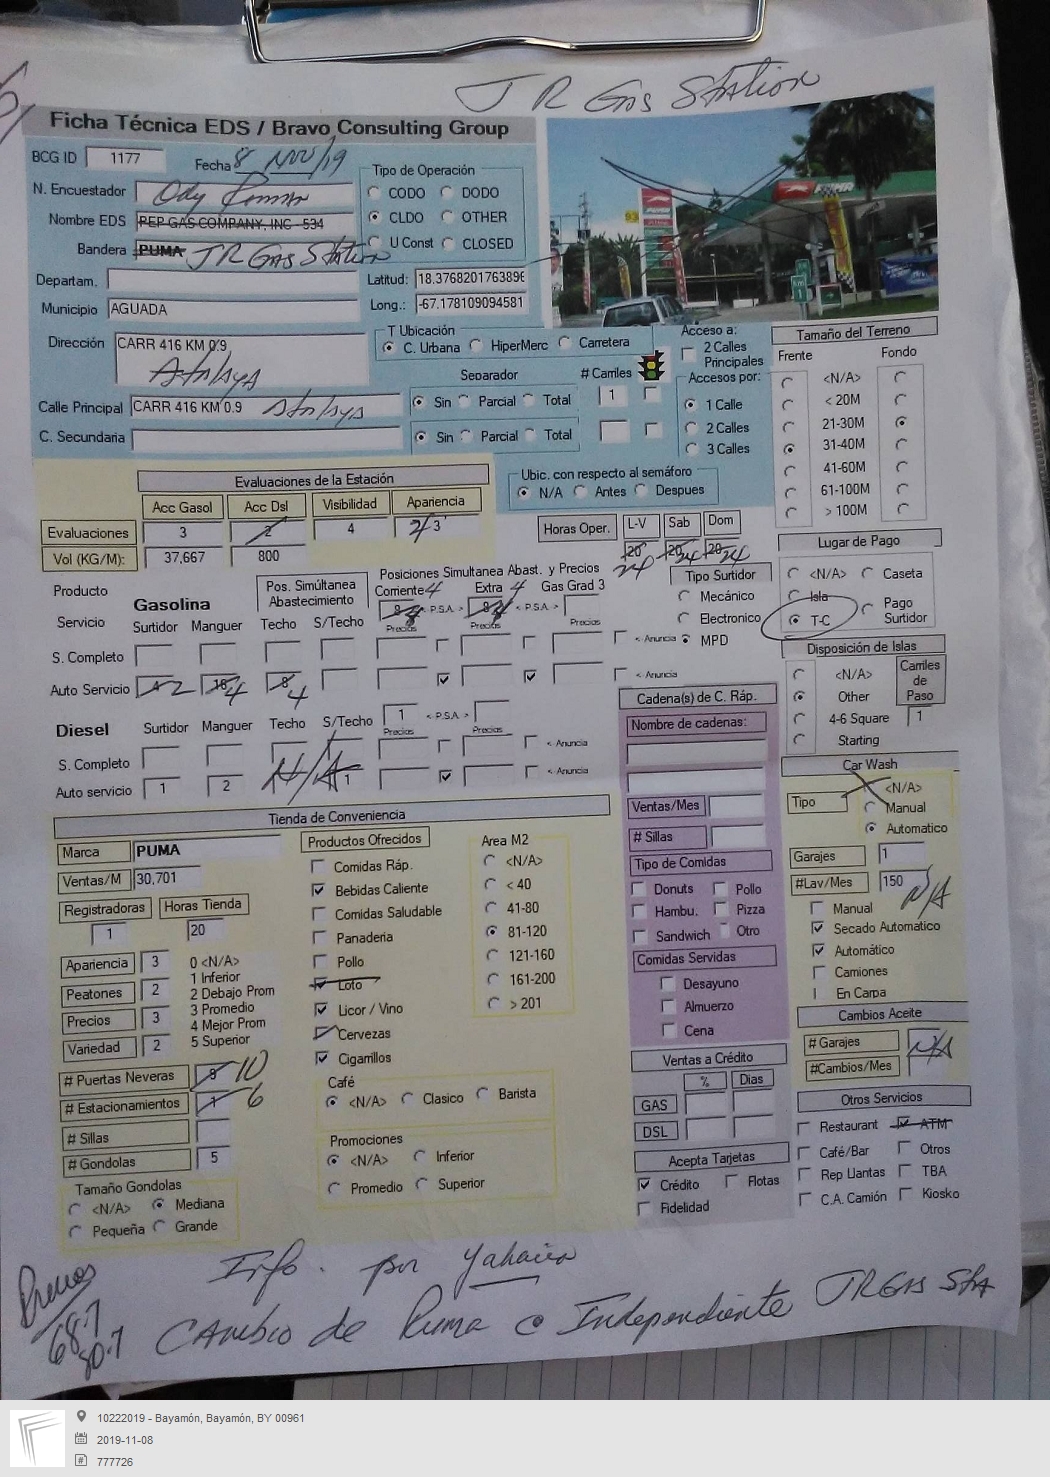 JR Gas Station
Ficha Técnica EDS / Bravo Consulting Group
BCG ID 1177
Fecha 8 Nov/19
N. Encuestador Ody
Nombre EDS PEP GAS COMPANY, INC - 534
Bandera PUMA JR Gas Station
Departam.
Municipio AGUADA
Tipo de Operación
CODO DODO
CLDO OTHER
U Const CLOSED
Latitud: 18.376820176389
Long.: -67.178109094581
Dirección CARR 416 KM 0.9
Calle Principal CARR 416 KM 0.9
C. Secundaria
T Ubicación
C. Urbana HiperMerc Carretera
Separador # Carriles
Sin Parcial Total 1
Sin Parcial Total
Acceso a:
2 Calles Principales
Accesos por:
1 Calle
2 Calles
3 Calles
Tamaño del Terreno
Frente Fondo
<N/A>
< 20M
21-30M
31-40M
41-60M
61-100M
> 100M
Ubic. con respecto al semáforo
N/A Antes Despues
Evaluaciones de la Estación
Acc Gasol Acc Dsl Visibilidad Apariencia
Evaluaciones 3 2 4 3
Vol (KG/M): 37,667 800
Horas Oper. L-V Sab Dom
20 20 20
24 24 24
Lugar de Pago
<N/A> Caseta
Isla
T-C Pago Surtidor
Tipo Surtidor
Mecánico
Electronico
MPD
Producto
Servicio
Gasolina
Pos. Simúltanea Abastecimiento
Posiciones Simultanea Abast. y Precios
Corriente 4 Extra 4 Gas Grad 3
8 < P.S.A. > 8 < P.S.A. >
Surtidor Manguer Techo S/Techo Precios Precios Precios
S. Completo < Anuncia
Auto Servicio 4 2 16 4 8 4 < Anuncia
Diesel
Surtidor Manguer Techo S/Techo 1 < P.S.A >
Precios Precios
S. Completo < Anuncia
Auto servicio 1 2 N/A 1 < Anuncia
Disposición de Islas
<N/A>
Other
4-6 Square
Starting
Carriles de Paso
1
Cadena(s) de C. Ráp.
Nombre de cadenas:
Ventas/Mes
# Sillas
Tipo de Comidas
Donuts Pollo
Hambu. Pizza
Sandwich Otro
Comidas Servidas
Desayuno
Almuerzo
Cena
Car Wash
Tipo
<N/A>
Manual
Automatico
Garajes 1
#Lav/Mes 150 N/A
Manual
Secado Automatico
Automático
Camiones
En Carpa
Cambios Aceite
# Garajes
#Cambios/Mes
N/A
Tienda de Conveniencia
Marca PUMA
Ventas/M 30,701
Registradoras Horas Tienda
1 20
Apariencia 3
Peatones 2
Precios 3
Variedad 2
0 <N/A>
1 Inferior
2 Debajo Prom
3 Promedio
4 Mejor Prom
5 Superior
# Puertas Neveras 10
# Estacionamientos 1 6
# Sillas
# Gondolas 5
Tamaño Gondolas
<N/A> Mediana
Pequeña Grande
Productos Ofrecidos
Comidas Ráp.
Bebidas Caliente
Comidas Saludable
Panaderia
Pollo
Loto
Licor / Vino
Cervezas
Cigarrillos
Area M2
<N/A>
< 40
41-80
81-120
121-160
161-200
> 201
Café
<N/A> Clasico Barista
Promociones
<N/A> Inferior
Promedio Superior
Ventas a Crédito
% Dias
GAS
DSL
Acepta Tarjetas
Crédito Flotas
Fidelidad
Otros Servicios
Restaurant ATM
Café/Bar Otros
Rep Llantas TBA
C.A. Camión Kiosko
Info. por Yahaira
Precios
68.7
80.7
Cambio de Puma @ Independiente JR Gas Sta
10222019 - Bayamón, Bayamón, BY 00961
2019-11-08
777726